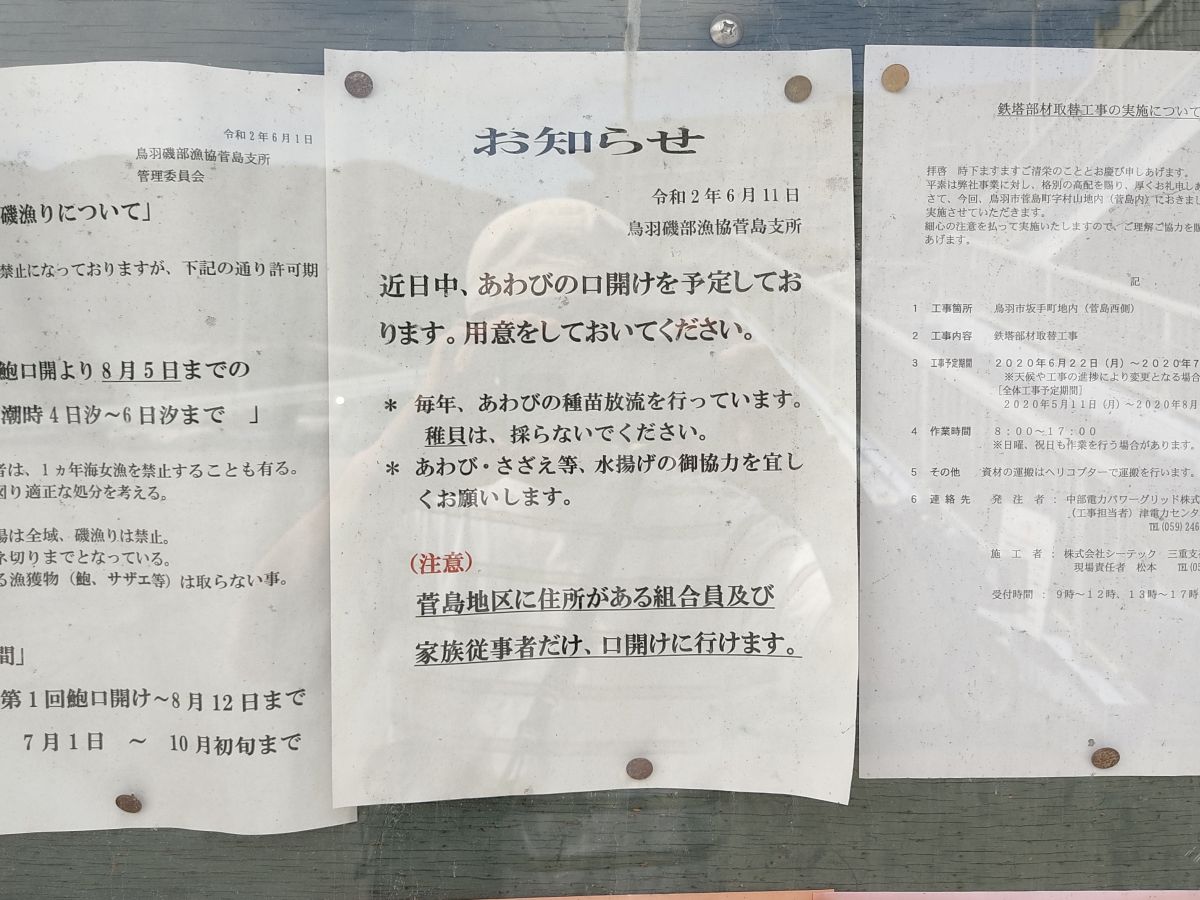 令和2年6月1日
鳥羽磯部漁協菅島支所
管理委員会
磯漁りについて」
禁止になっておりますが、下記の通り許可期
鮑口開より8月5日までの
潮時4日汐~6日汐まで 」
者は、1ヵ年海女漁を禁止することも有る。
図り適正な処分を考える。
場は全域、磯漁りは禁止。
ネ切りまでとなっている。
る漁獲物(鮑、サザエ等)は取らない事。
間」
第1回鮑口開け~8月12日まで
7月1日 ~ 10月初旬まで
お知らせ
令和2年6月11日
鳥羽磯部漁協菅島支所
近日中、あわびの口開けを予定してお
ります。用意をしておいてください。
* 毎年、あわびの種苗放流を行っています。
稚貝は、採らないでください。
* あわび・さざえ等、水揚げの御協力を宜し
くお願いします。
(注意)
菅島地区に住所がある組合員及び
家族従事者だけ、口開けに行けます。
鉄塔部材取替工事の実施について
拝啓 時下ますますご清栄のこととお慶び申しあげます。
平素は弊社事業に対し、格別の高配を賜り、厚くお礼申しあ
さて、今回、鳥羽市菅島町字村山地内(菅島内)におきまし
実施させていただきます。
細心の注意を払って実施いたしますので、ご理解ご協力を賜
あげます。
記
1 工事箇所 鳥羽市坂手町地内(菅島西側)
2 工事内容 鉄塔部材取替工事
3 工事予定期間 2020年6月22日(月)~2020年7
※天候や工事の進捗により変更となる場合
[全体工事予定期間]
2020年5月11日(月)~2020年8月
4 作業時間 8:00~17:00
※日曜、祝日も作業を行う場合があります。
5 その他 資材の運搬はヘリコプターで運搬を行います。
6 連絡先 発注者: 中部電力パワーグリッド株式
(工事担当者)津電力センタ
TEL(059)246
施工者: 株式会社シーテック 三重支
現場責任者 松本 TEL(05
受付時間: 9時~12時、13時~17時